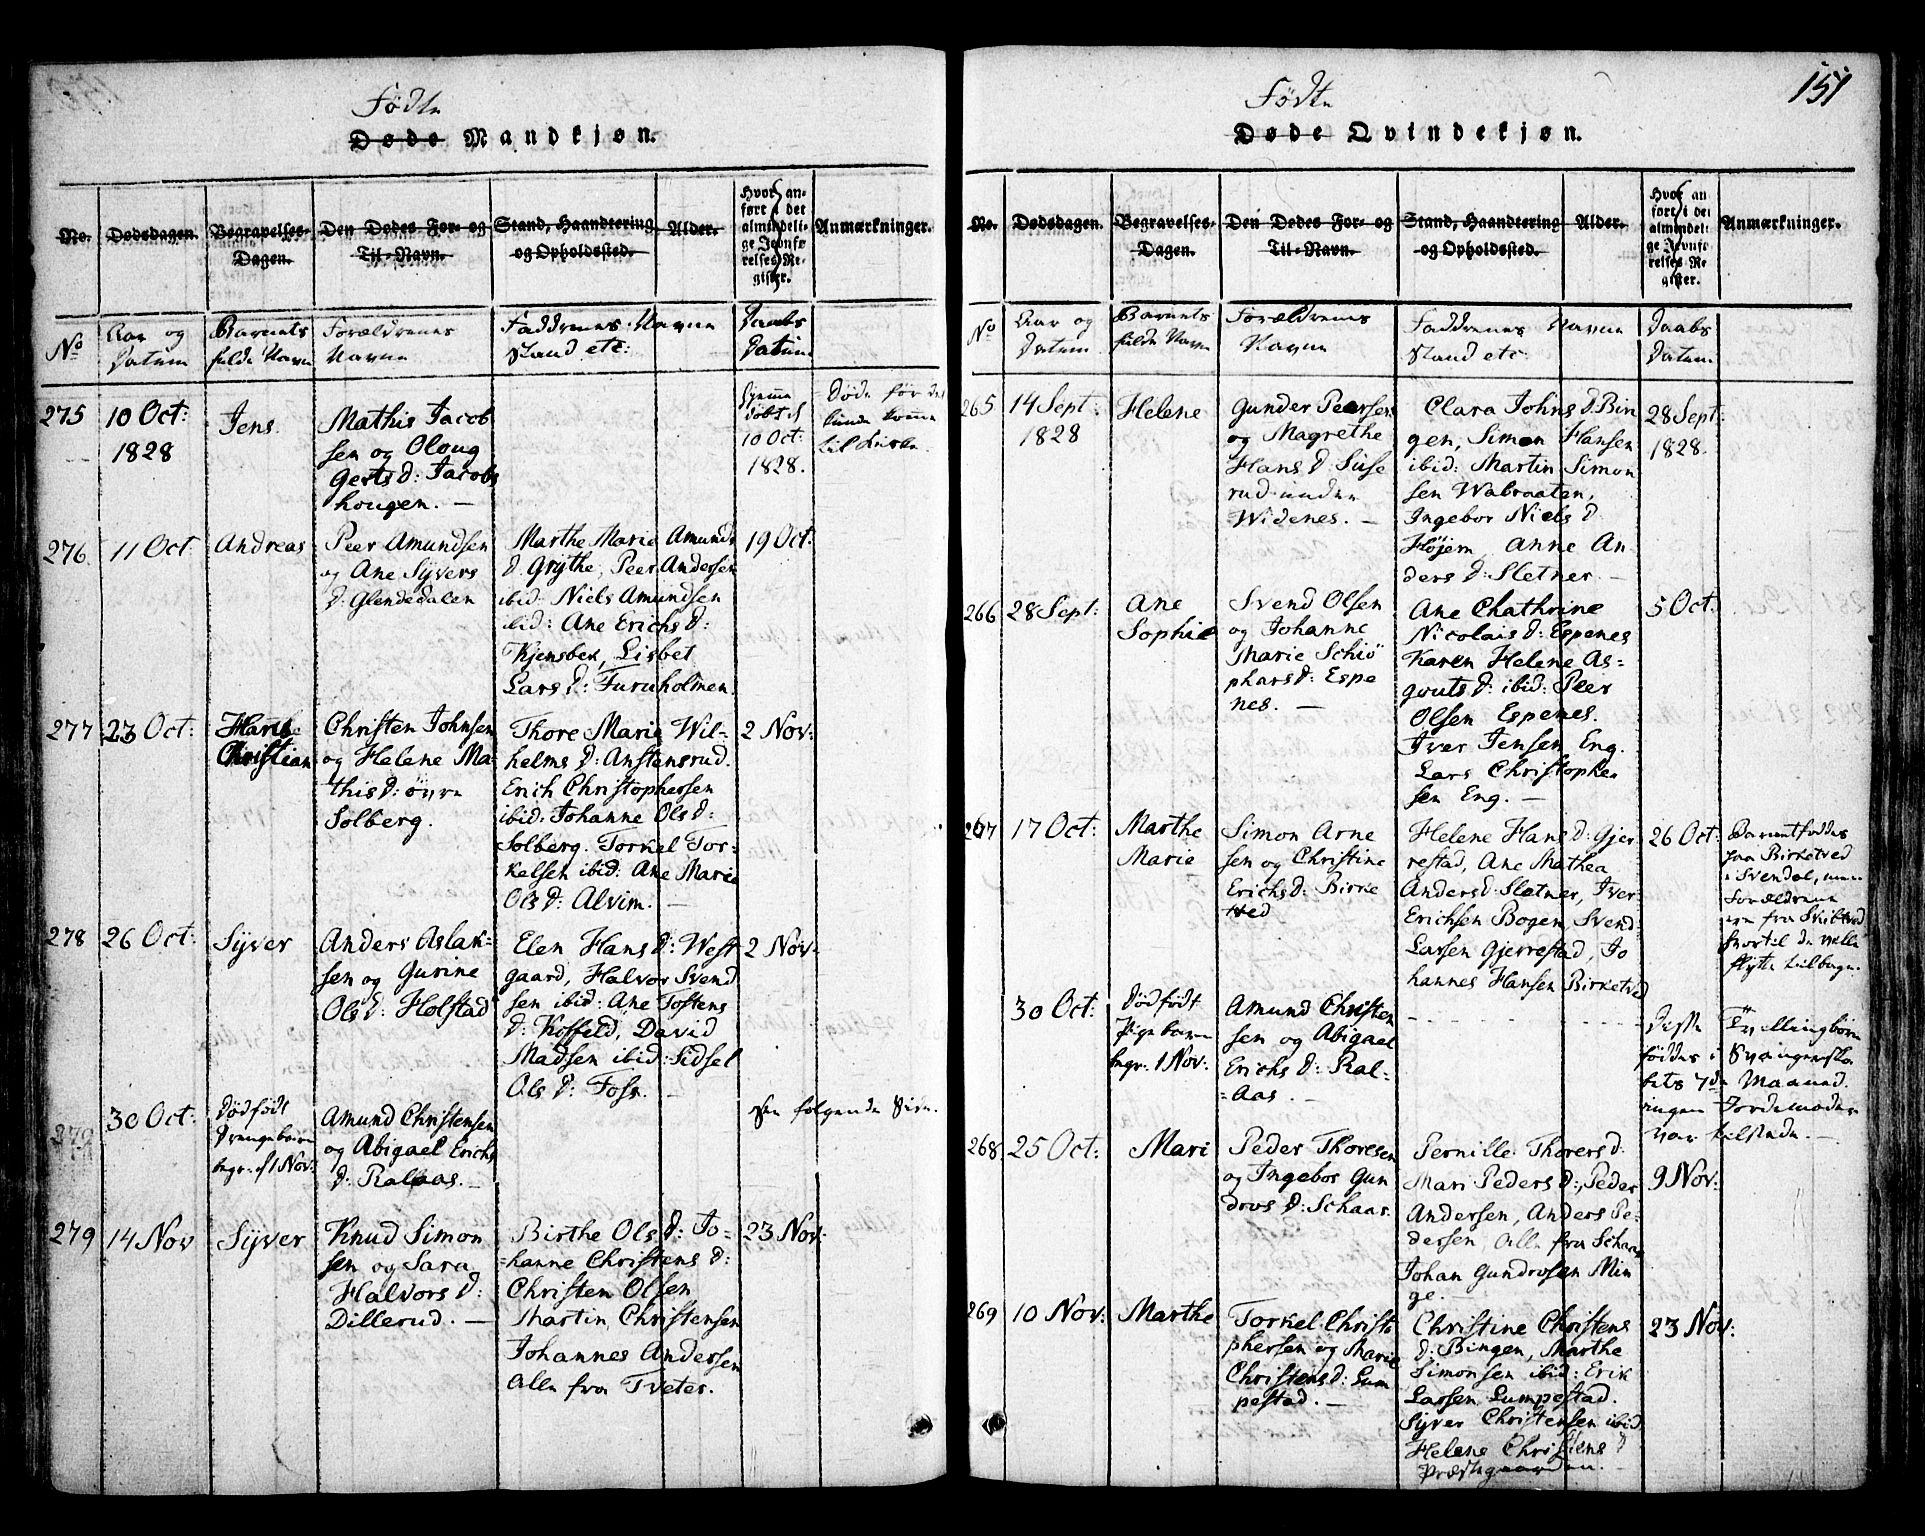 151
Fødte
Døde Mandkjøn.
No.
Dødsdagen.
Begravelses-
Dagen.
Den Dødes For- og
Til-Navn.
Stand, Haandtering
og Opholdssted.
Alder.
Hvor an-
ført i det
almindeli-
ge Jevnfø
relses Re-
gister.
Anmærkninger.
No
Aar og
Datum
Barnets
fulde Navn
Forældrenes
Navne
Faddrenes Navne
Stand etc:
Daabs
Datum
275
10 Oct:
1828
Jens.
Mathis Jacob
sen og Oloug
Gertsd: Jacobs
hougen. —
Hjemme
døbt d
10 Oct:
1828.
Døde før det
kunde komme
til Kirke.
276.
11 Oct
Andreas
Peer Amundsen
og Ane Syvers
d: Glendedalen
Marthe Marie Amunds
d. Grythe, Peer Andersen
ibid: Niels Amundsen
ibid: Ane Erichsd:
Kjensbek, Lisbet
Larsd: Furuholmen.
19 Oct:
277
23 Oct:
Hans
Christian
Christen Johnsen
og Helene Ma-
thisd: øvre
Solberg.
Thore Marie Wil-
helmsd: Anstensrud.
Erich Christophersen
ibid: Johanne Olsd:
Solberg. Torkel Tor-
kelsen ibid: Ane Marie
Olsd: Alvim. —
2 Nov:
278
26 Oct:
Syver
Anders Aslak-
sen og Gurine
Olsd: Holstad
Elen Hansd: West
gaard, Halvor Svend
sen ibid: Ane Tostens
d: Koffeld, David
Madsen ibid: Sidsel
Olsd: Foss. —
2 Nov:
279
30 Oct:
Dødfødt
Drengebarn
begr: d 1 Nov:
Amund Christensen
og Abigael Erichs
d: Ralaas. —
See følgende Side.
279
14 Nov
Syver
Knud Simon
sen og Sara
Halvorsd:
Dillerud. —
Birthe Olsd: Jo-
hanne Christensd:
Christen Olsen
Martin Christensen
Johannes Andersen
Alle fra Tveter.
23 Nov:
Fødte
Døde Qvindekjøn.
No.
Dødsdagen.
Begravelses-
Dagen.
Den Dødes For- og
Til-Navn.
Stand, Haandtering
og Opholdssted.
Alder.
Hvor an
ført i det
almindeli-
ge Jevnfø-
relses Re
gister.
Anmærkninger.
No
Aar og
Datum
Barnets
fulde Navn
Forældrenes
Navne
Faddrenes Navne
Stand etc:
Daabs
Datum
265
14 Sept:
1828
Helene
Gunder Peersen
og Magrethe
Hansd: Suse
rud under
Widenes. —
Clara Johnsd: Bin
gen, Simon Hansen
ibid: Martin Simon
sen Wabraaten,
Ingebor Nielsd
Højem, Anne An
dersd: Sletner —
28 Sept:
1828.
266
28 Sept:
Ane
Sophie
Svend Olsen
og Johanne
Marie Schiö
pharsd: Espe
nes. —
Ane Chathrine
Nicolaisd: Espenes
Karen Helene As-
goutsd: ibid: Peer
Olsen Espenes.
Iver Jensen Eng.
Lars Christopher
sen Eng. —
5 Oct:
267
17 Oct:
Marthe
Marie
Simon Arne
sen og Christine
Erichsd: Birke
tved
Helene Hansd: Gjer
restad, Ane Mathea
Andersd: Sletner, Iver
Erichsen Bogen, Svend
Larsen Gjerrestad, Jo
hannes Hansen Birketved
26 Oct:
Barnet føddes
paa Birketved
i Svendal, men
Forældrene
ere fra
hvortil de ville
flytte tilbage.
30 Oct:
Dødfødt
Pigebarn
begr: 1 Nov:
Amund Christen
sen og Abigael
Erichsd: Ral-
aas. —
Disse Tvillingbørn
føddes i Svangerska
bets 7de Maaned.
ingen Jordemoder
var tilstede. —
268
25 Oct:
Mari
Peder Thoresen
og Ingebor Gun
drosd: Schaar
Pernille Thorersd:
Mari Pedersd:, Peder
Andersen, Anders Pe-
dersen Alle fra Schaar
Johan Gundrosen Min
ge.
9 Nov:
269
10 Nov:
Marthe
Torkel Christo
phersen og Marie
Christensd: Lum
pestad. —
Christine Christens
d: Bingen, Marthe
Simonsen ibid: Erik
Larsen Lumpestad.
Syver Christensen ibid
Helene Christensd
Præstegaarden.
23 Nov: